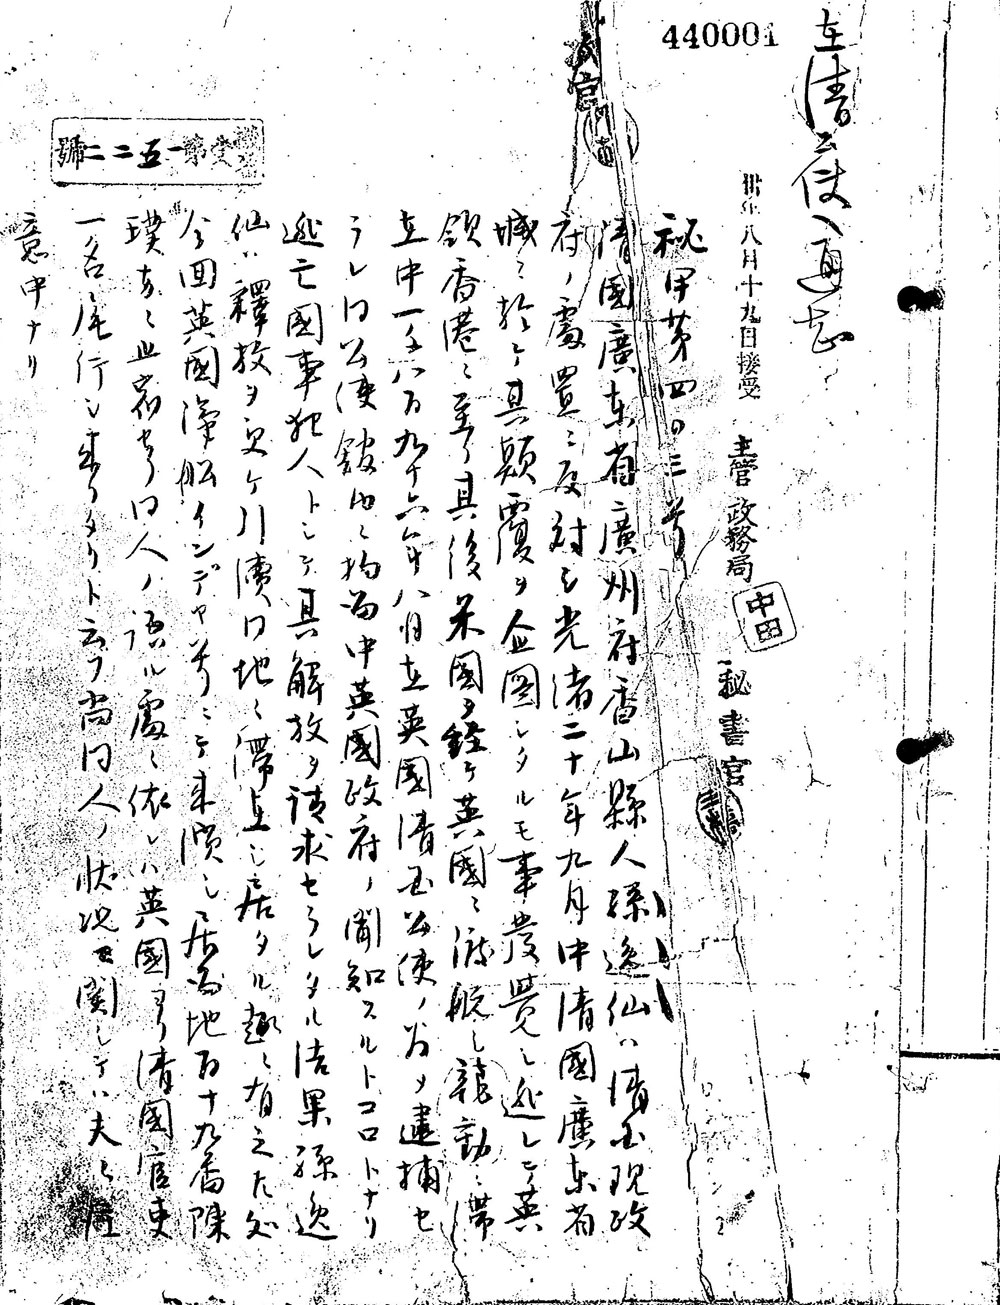 440001
在清公使ヘ通知
明治 八月十九日接受
主管 政務局
中田
秘書官
三橋
受第一五二二號
秘甲第四〇三号
清國廣東省廣州府香山縣人孫逸仙ハ清国現政
府ノ處置ニ反対シ光緒二十年九月中清國廣東省
城ニ於テ其顛覆ヲ企図シタルモ事發覺シ逃レテ英
領香港ニ至リ其後米國ヲ経テ英國ニ渡航シ龍動ニ滞
在中一千八百九十六年八月在英國清国公使ノ為メ逮捕セ
ラレ同公使館内ニ拘留中英國政府ノ聞知スルトコロトナリ
逃亡國事犯人トシテ其解放ヲ請求セラレタル結果孫逸
仙ハ釋放ヲ受ケ引續同地ニ滞在シ居タル趣ニ有之タル処
今回英國滊舩インデヤ号ニテ来濱シ居留地百十九番陳
璞方ニ止宿セリ同人ノ語ル處ニ依レハ英國ヨリ清國官吏
一名尾行シ来リタリト云フ尚同人ノ状况ニ関シテハ夫々注
意中ナリ